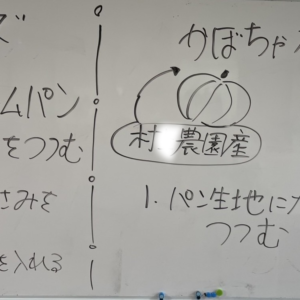 ズ
ムパン
をつつむ
さみを
を入れる
かぼちゃ
村 農園産
1. パン生地に
つつむ